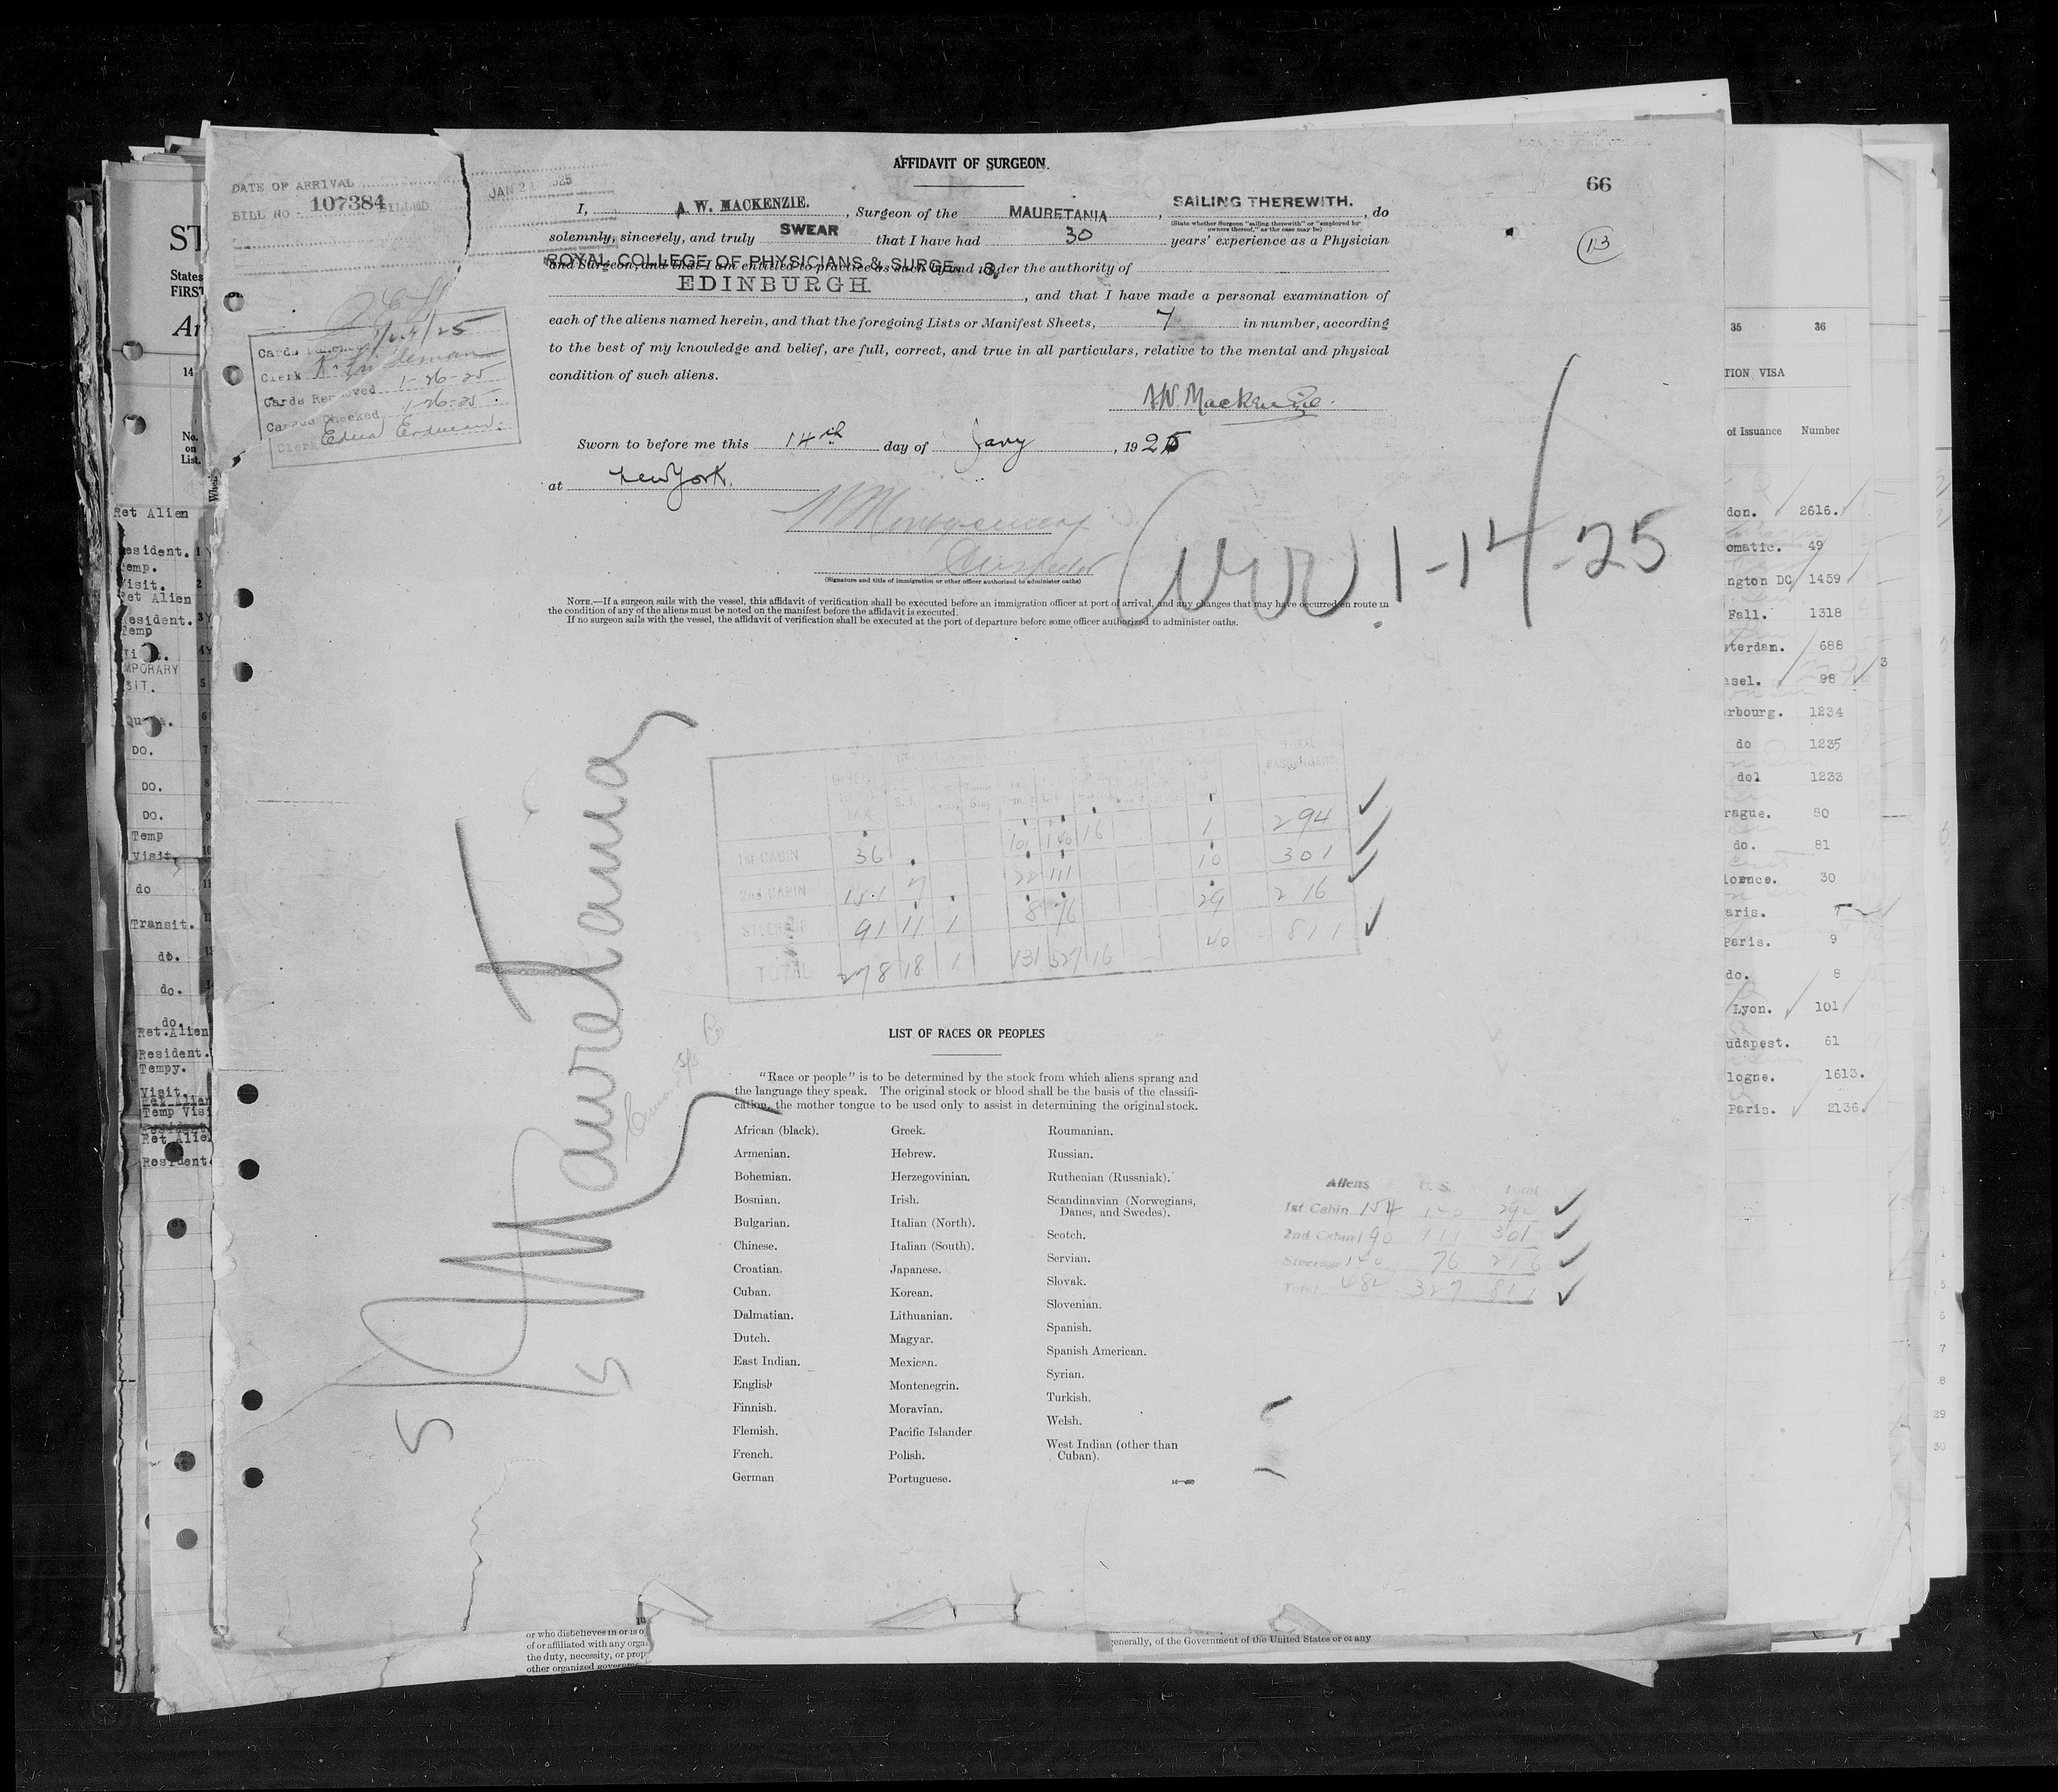 AFFIDAVIT OF SURGEON.
66
13
DATE OF ARRIVAL JAN 21 1925
BILL NO. 107384 BILLED
I, A. W. MACKENZIE. , Surgeon of the MAURETANIA , SAILING THEREWITH. , do
(State whether Surgeon "sailing therewith" or "employed by
owners thereof," as the case may be)
solemnly, sincerely, and truly SWEAR that I have had 30 years' experience as a Physician
ROYAL COLLEGE OF PHYSICIANS & SURGE
and Surgeon, and that I am entitled to practice as such by and under the authority of
EDINBURGH. , and that I have made a personal examination of
each of the aliens named herein, and that the foregoing Lists or Manifest Sheets, 7 in number, according
to the best of my knowledge and belief, are full, correct, and true in all particulars, relative to the mental and physical
condition of such aliens.
A.W. Mackenzie.
Sworn to before me this 14th day of Jany , 1925
at New York.
Inspector
(Signature and title of immigration or other officer authorized to administer oaths)
1-14-25
NOTE.—If a surgeon sails with the vessel, this affidavit of verification shall be executed before an immigration officer at port of arrival, and any changes that may have occurred en route in
the condition of any of the aliens must be noted on the manifest before the affidavit is executed.
If no surgeon sails with the vessel, the affidavit of verification shall be executed at the port of departure before some officer authorized to administer oaths.
Cards
Clerk
Cards Removed 1-26-25
Checked 1-26-25
Clerk Edna
Mauretania
TOTAL PASSENGERS
1st CABIN 36 101 140 16 1 294
2nd CABIN 151 7 22 111 10 301
STEERAGE 91 11 1 8 76 29 216
TOTAL 278 18 1 131 327 16 40 811
LIST OF RACES OR PEOPLES
"Race or people" is to be determined by the stock from which aliens sprang and
the language they speak. The original stock or blood shall be the basis of the classifi-
cation, the mother tongue to be used only to assist in determining the original stock.
African (black).
Armenian.
Bohemian.
Bosnian.
Bulgarian.
Chinese.
Croatian.
Cuban.
Dalmatian.
Dutch.
East Indian.
English
Finnish.
Flemish.
French.
German
Greek.
Hebrew.
Herzegovinian.
Irish.
Italian (North).
Italian (South).
Japanese.
Korean.
Lithuanian.
Magyar.
Mexican.
Montenegrin.
Moravian.
Pacific Islander
Polish.
Portuguese.
Roumanian.
Russian.
Ruthenian (Russniak).
Scandinavian (Norwegians,
Danes, and Swedes).
Scotch.
Servian.
Slovak.
Slovenian.
Spanish.
Spanish American.
Syrian.
Turkish.
Welsh.
West Indian (other than
Cuban).
Aliens U. S. Total
1st Cabin 154 140 294
2nd Cabin 190 111 301
Steerage 140 76 216
Total 484 327 811
States
FIRST
14
No.
on
List.
Ret Alien
esident. 1
emp.
Visit. 2
Ret Alien
esident. 3
Temp
4
MPORARY
SIT. 5
6
DO. 7
DO. 8
DO. 9
Temp
Visit. 10
do 11
Transit.
do.
do.
do.
Ret.Alien
Resident.
Tempy.
Visit.
Ret Alien
Temp Visi
Resident
Ret Alie
Resident
35 36
TION VISA
of Issuance Number
don. 2616.
omatic. 49
ngton DC 1459
Fall. 1318
sterdam. 688
asel. 98 3
rbourg. 1234
do 1235
dol 1233
rague. 80
do. 81
lorence. 30
aris.
Paris. 9
do. 8
Lyon. 101
udapest. 61
logne. 1613.
Paris. 2136.
or who disbelieves in or is o
of or affiliated with any orga
the duty, necessity, or prop
other organized governme
generally, of the Government of the United States or of any